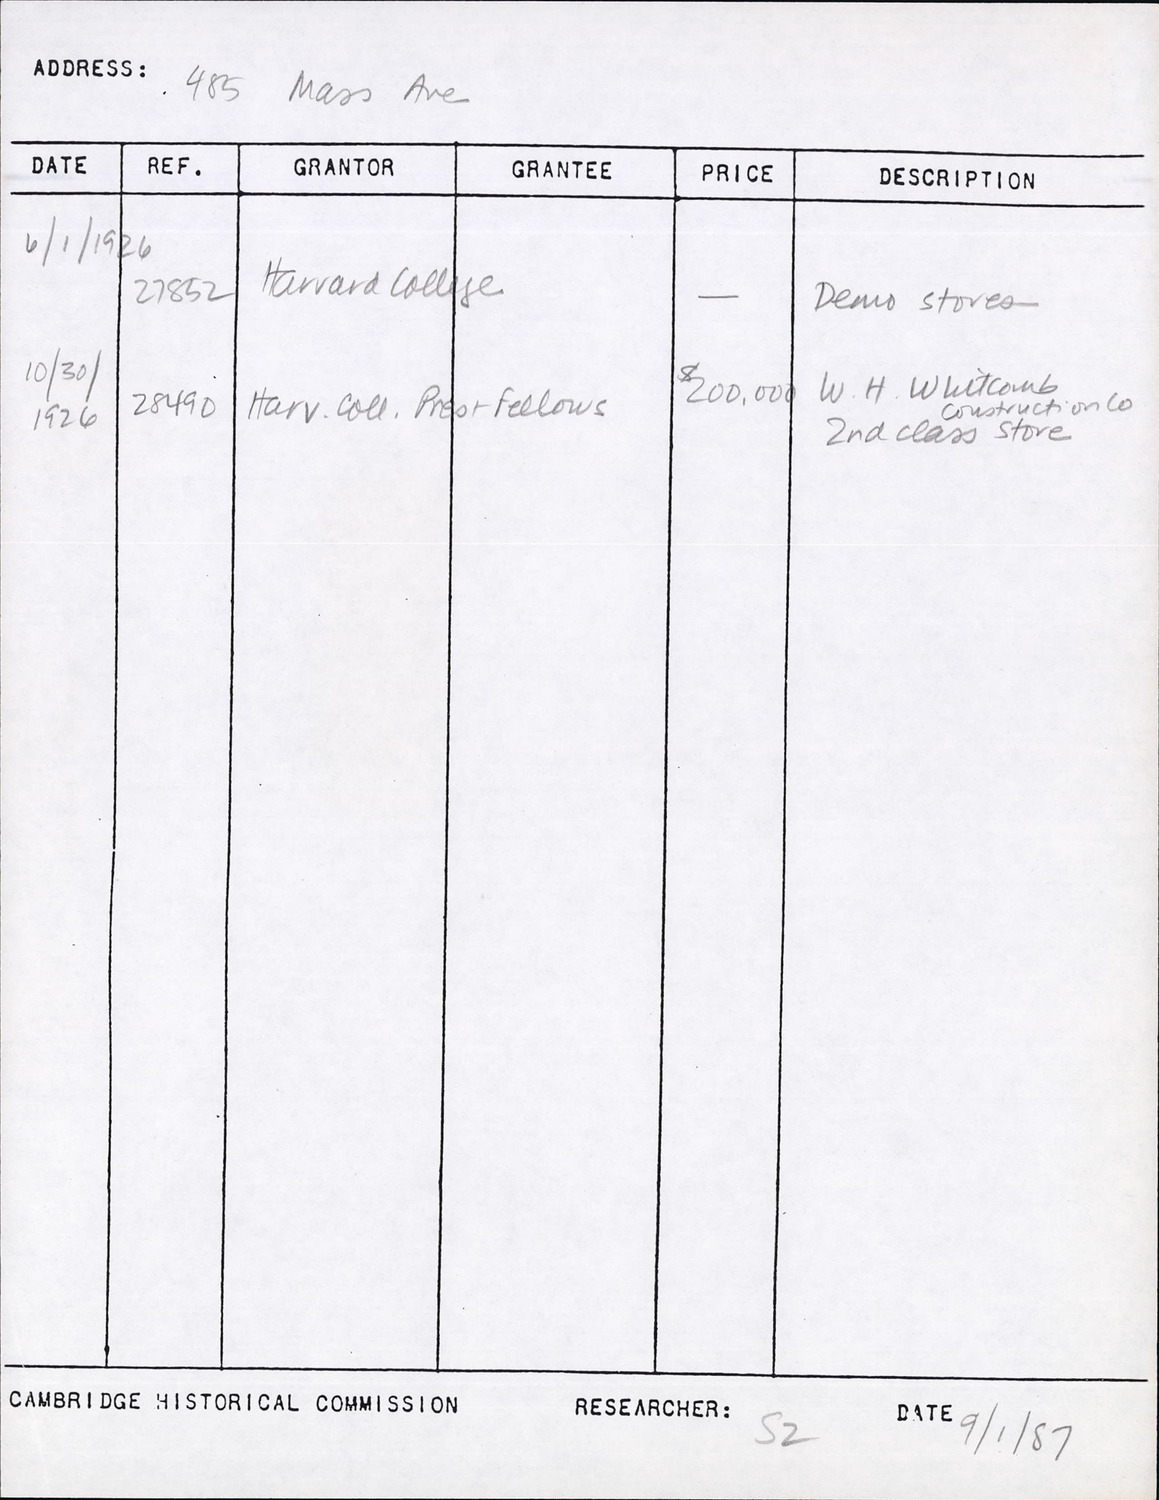 ADDRESS: 485 Mass Ave
DATE REF. GRANTOR GRANTEE PRICE DESCRIPTION
6/1/1926
27852 Harvard College — Demo stores
10/30/ $200,000 W. H. Whitcomb
1926 28490 Harv. Coll. Pres + Fellows Construction Co
2nd class Store
CAMBRIDGE HISTORICAL COMMISSION RESEARCHER: SZ DATE 9/1/87